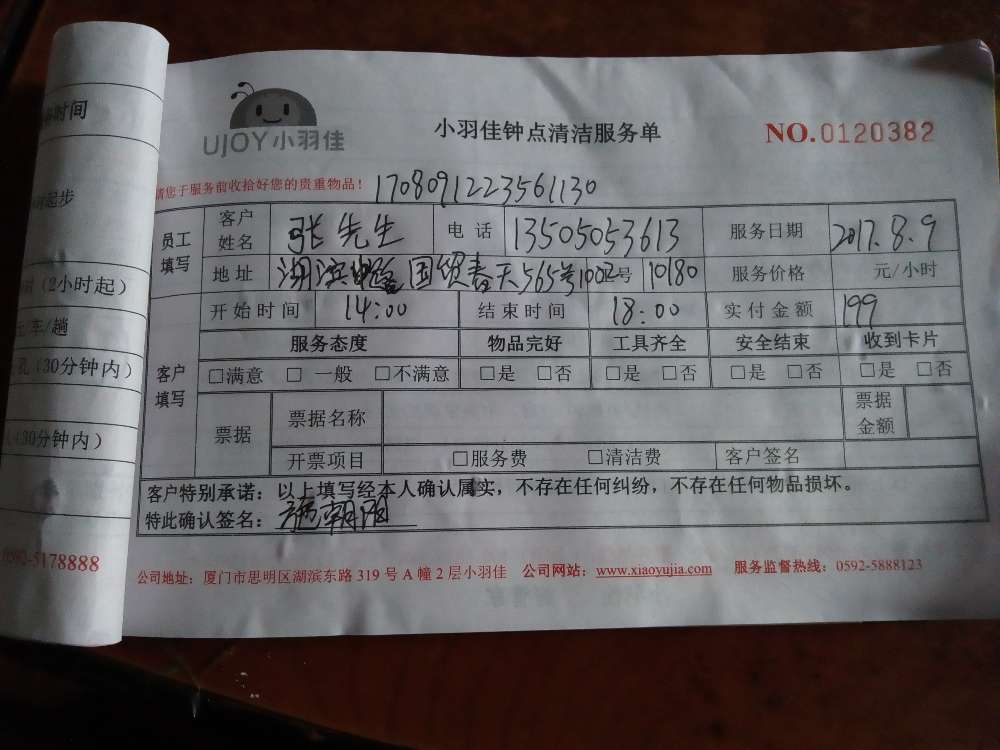 时间
起步
(2小时起)
元 车/趟
孔(30分钟内)
(30分钟内)
0592-5178888
UJOY小羽佳
小羽佳钟点清洁服务单 NO.0120382
请您于服务前收拾好您的贵重物品! 1708091223561130
员工填写 客户姓名 张先生 电话 13505053613 服务日期 2017.8.9
地址 湖滨 国贸春天565号1002号 10180 服务价格 元/小时
开始时间 14:00 结束时间 18:00 实付金额 199
客户填写 服务态度 物品完好 工具齐全 安全结束 收到卡片
□满意 □一般 □不满意 □是 □否 □是 □否 □是 □否 □是 □否
票据 票据名称 票据金额
开票项目 □服务费 □清洁费 客户签名
客户特别承诺:以上填写经本人确认属实,不存在任何纠纷,不存在任何物品损坏。
特此确认签名:
公司地址:厦门市思明区湖滨东路 319 号 A 幢 2 层小羽佳 公司网站:www.xiaoyujia.com 服务监督热线:0592-5888123